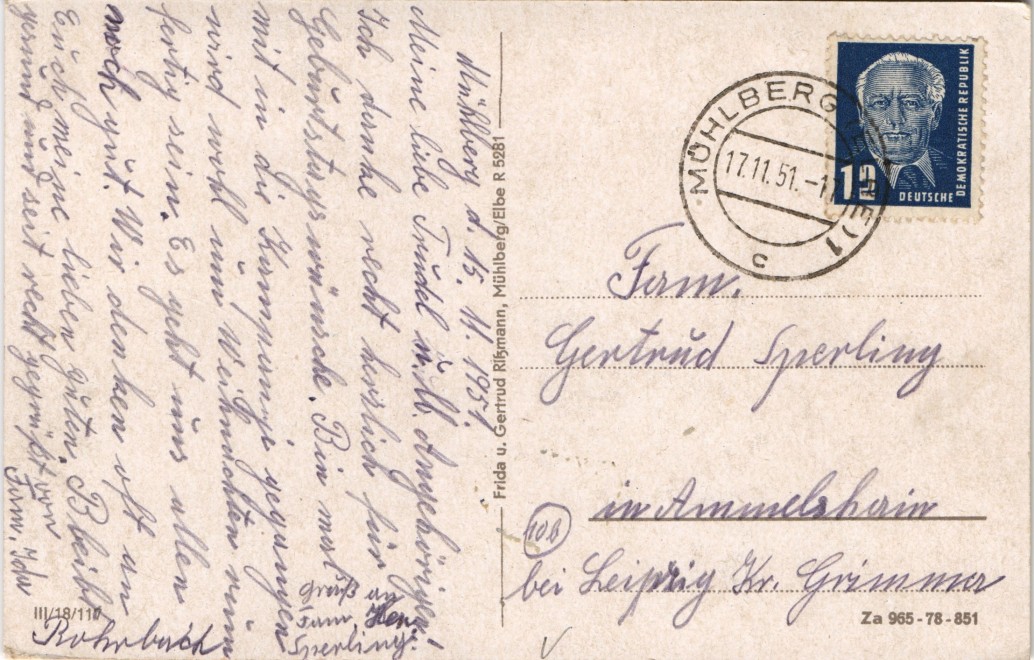 Mühlberg d. 15. 11. 1951.
Meine liebe Trudel u. M. Angehörigen!
Ich danke recht herzlich für
Geburtstagswünsche. Bin mal
mit in die Kompanie gegangen
wird wohl nun Weihnachten rum
fertig sein. Es geht uns allen
noch gut. Wir denken oft an
Euch meine lieben guten. Bleibt
gesund und seit recht gegrüßt von
Fam. Ida
Rohrbach
Gruß an
Fam. Her.
Sperling.
III/18/117
Frida u. Gertrud Rißmann, Mühlberg/Elbe R 5281
MÜHLBERG (ELBE) 1
17.11.51.-1
c
12
DEUTSCHE
DEMOKRATISCHE REPUBLIK
Fam.
Gertrud Sperling
10b
in Ammelshain
bei Leipzig Kr. Grimma
Za 965-78-851